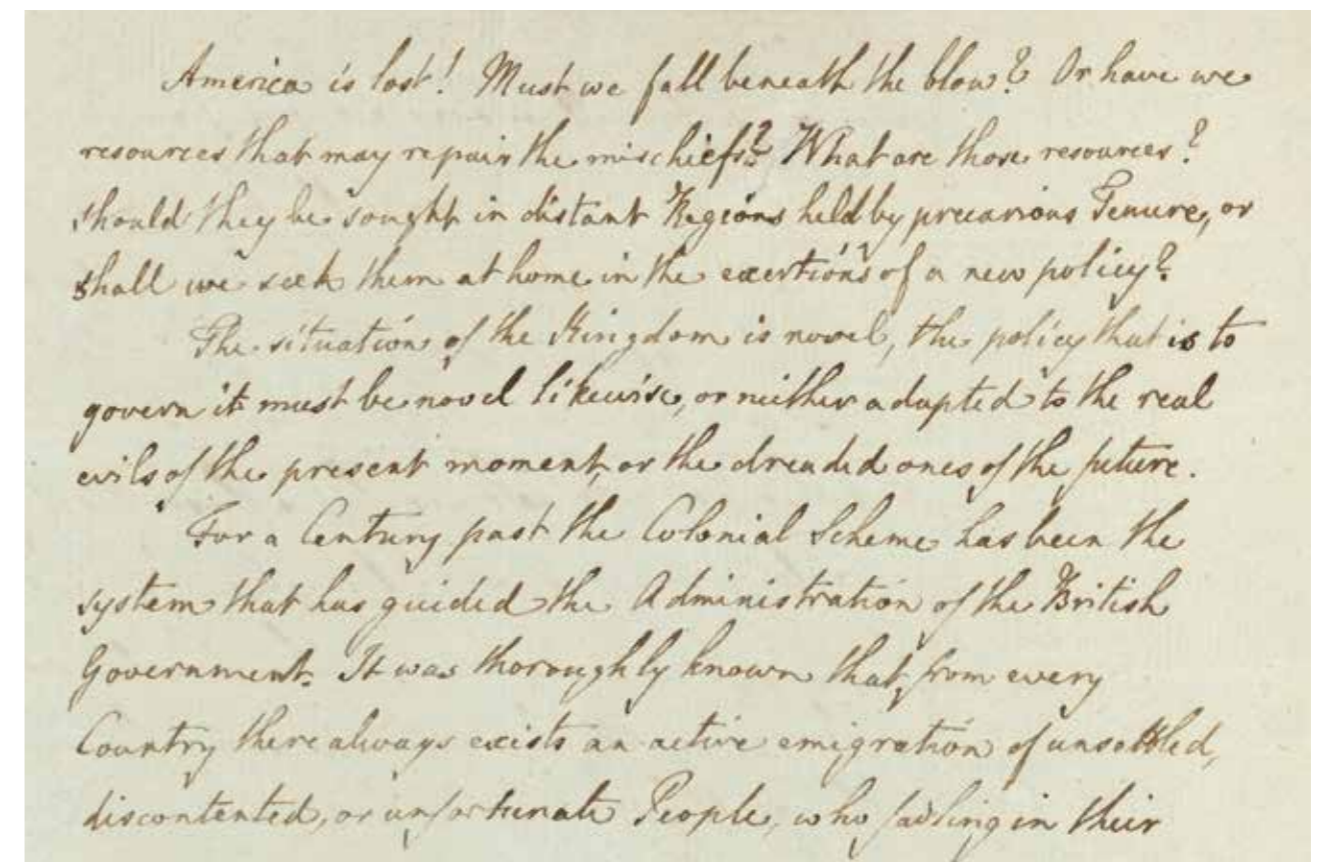 America is lost! Must we fall beneath the blow? Or have we
resources that may repair the mischiefs? What are those resources?
should they be sought in distant Regions held by precarious Tenure, or
shall we seek them at home in the exertions of a new policy?
The situation of the Kingdom is novel, the policy that is to
govern it must be novel likewise, or neither adapted to the real
evils of the present moment, or the dreaded ones of the future.
For a Century past the Colonial Scheme has been the
system that has guided the Administration of the British
Government. It was thoroughly known that, from every
Country there always exists an active emigration of unsettled,
discontented, or unfortunate People, who failing in their